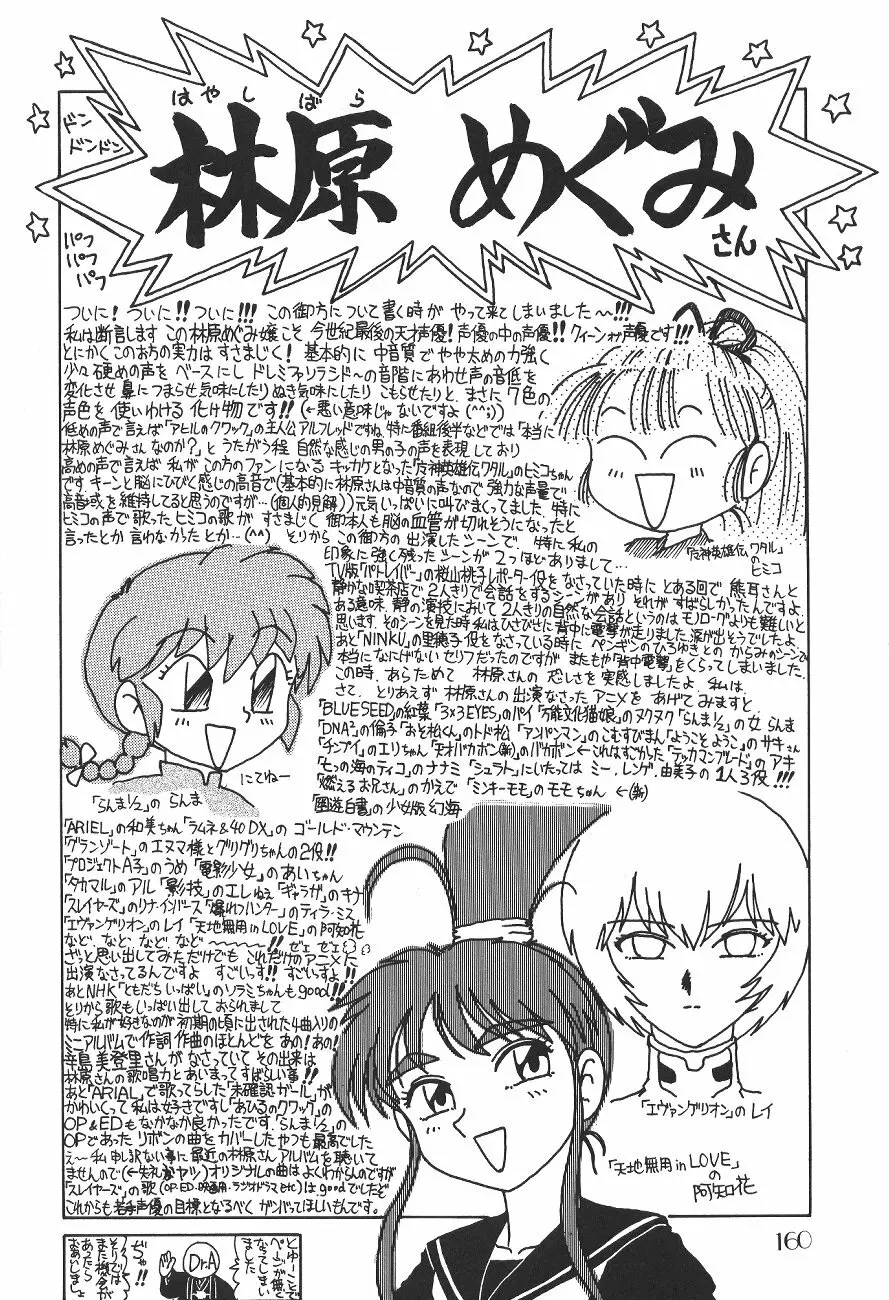 はやしばら
林原 めぐみ
さん
ドン
ドンドン
パフ
パフ
パフ
ついに! ついに!! ついに!!! この御方について書く時が やって来てしまいました〜!!!
私は断言します この林原めぐみ嬢こそ 今世紀最後の天才声優! 声優の中の声優!! クィーンオブ声優です!!!
とにかく このお方の実力は すさまじく! 基本的に 中音質で やや太めの力強く
少々 硬めの声を ベースにし ドレミファソラシド〜の音階にあわせ声の音低を
変化させ 鼻に つまらせ気味にしたり ぬき気味にしたり こもらせたりと、まさに 7色の
声色を 使いわける 化け物です!! (←悪い意味じゃないですよ(^^;))
低めの声で言えば「アヒルのクワック」の主人公アルフレッドですね、特に番組後半などでは「本当に
林原めぐみさんなのか?」と うたがう程 自然な感じの男の子の声を表現しており
高めの声で言えば 私が この方のファンになる キッカケとなった「魔神英雄伝ワタル」のヒミコちゃん
です キーンと脳にひびく感じの高音で(基本的に林原さんは中音質の声なので 強力な声量で
高音域を維持してると思うのですが…(個人的見解)) 元気いっぱいに叫びまくってました、特に
ヒミコの声で歌った ヒミコの歌が すさまじく 御本人も脳の血管が切れそうになったと
言ったとか 言わなかったとか…(^^) そりから この御方の 出演したシーンで 特に私の
印象に強く残った シーンが 2つほどありまして…
TV版「パトレイバー」の桜山桃子レポーター役を なさっていた時に とある回で 熊耳さんと
静かな喫茶店で 2人きりで会話をするシーンがあり それが すばらしかったんですよ、
ある意味、静の演技において 2人きりの自然な会話というのは モノローグよりも難しいと
思います、そのシーンを見た時 私はひさびさに 背中に電撃が走りました 涙が出そうでしたよ、
あと「NINKU」の里穂子役を なさっている時に ペンギンの ひろゆきとの からみのシーンで
本当になにげない セリフだったのですが またもや「背中電撃」をくらってしまいました、
この時、あらためて 林原さんの 恐しさを実感しましたよ 私は
さて、とりあえず 林原さんの 出演なさった アニメを あげてみますと、
「BLUESEED」の紅葉「3×3EYES」のパイ「万能文化猫娘」のヌクヌク「らんま1/2」の女らんま
「DNA²」の倫子「おそ松くん」のトド松「アンパンマン」のこむすびまん「ようこそようこ」のサキさん
「チンプイ」のエリちゃん「天才バカボン(新)」のバカボン←これはすごかった「テッカマンブレード」のアキ
「七つの海のティコ」のナナミ「シュラト」にいたっては ミー、レンゲ、由美子の 1人3役!!!
「燃えるお兄さん」のかえで「ミンキーモモ」のモモちゃん ←(新)
「幽遊白書」の少女版 幻海
「ARIEL」の和美ちゃん「ラムネ&40 DX」の ゴールド・マウンテン
「グランゾート」のエヌマ様と グリグリちゃんの2役!!
「プロジェクトA子」のうめ「電影少女」のあいちゃん
「タカマル」のアル「影技」のエレねぇ「ギャラガ」のキナ
「スレイヤーズ」のリナ・インバース「爆れつハンター」のティラ・ミス
「エヴァンゲリオン」のレイ「天地無用 in LOVE」の阿知花
など、など、など、など〜〜〜!! ゼェ ゼェ
ざっと思い出してみただけでも これだけのアニメに
出演なさってるんですよ すごいっす!! すごいすよ!!
あとNHK「ともだちいっぱい」のソラミちゃんもgood!!!
そりから歌もいっぱい出しておられまして
特に私が好きなのが 初期の頃に出された4曲入りの
ミニアルバムで作詞作曲のほとんどを あの! あの!
辛島美登里さんが なさっていて その出来は
林原さんの歌唱力と あいまってすばらしい事!!
あと「ARIAL」で歌ってらした「未確認ガール」が
かわいくって 私は好きですし「あひるのクワック」の
OP&EDもなかなか良かったです、「らんま1/2」の
OPであった リボンの曲を カバーした やつも最高でした
え〜 私 申し訳ない事に 最近の林原さん アルバムを聴いて
ませんので(←失礼なヤツ) オリジナルの曲は よくわからんのですが
「スレイヤーズ」の歌 (OP・ED・映画用・ラジオドラマ etc) は goodでしたど
これからも若手声優の目標となるべく ガンバってほしいもんです。
「魔神英雄伝 ワタル」
の
ヒミコ
にてねー
「らんま1/2」の らんま
「エヴァンゲリオン」の レイ
「天地無用 in LOVE」
の
阿知花
160
とゆーことで
ページが無く
なってしまい
ました
Dr.A
ぢゃ!!
そりでは
また機会が
あったら
おあいしましょ